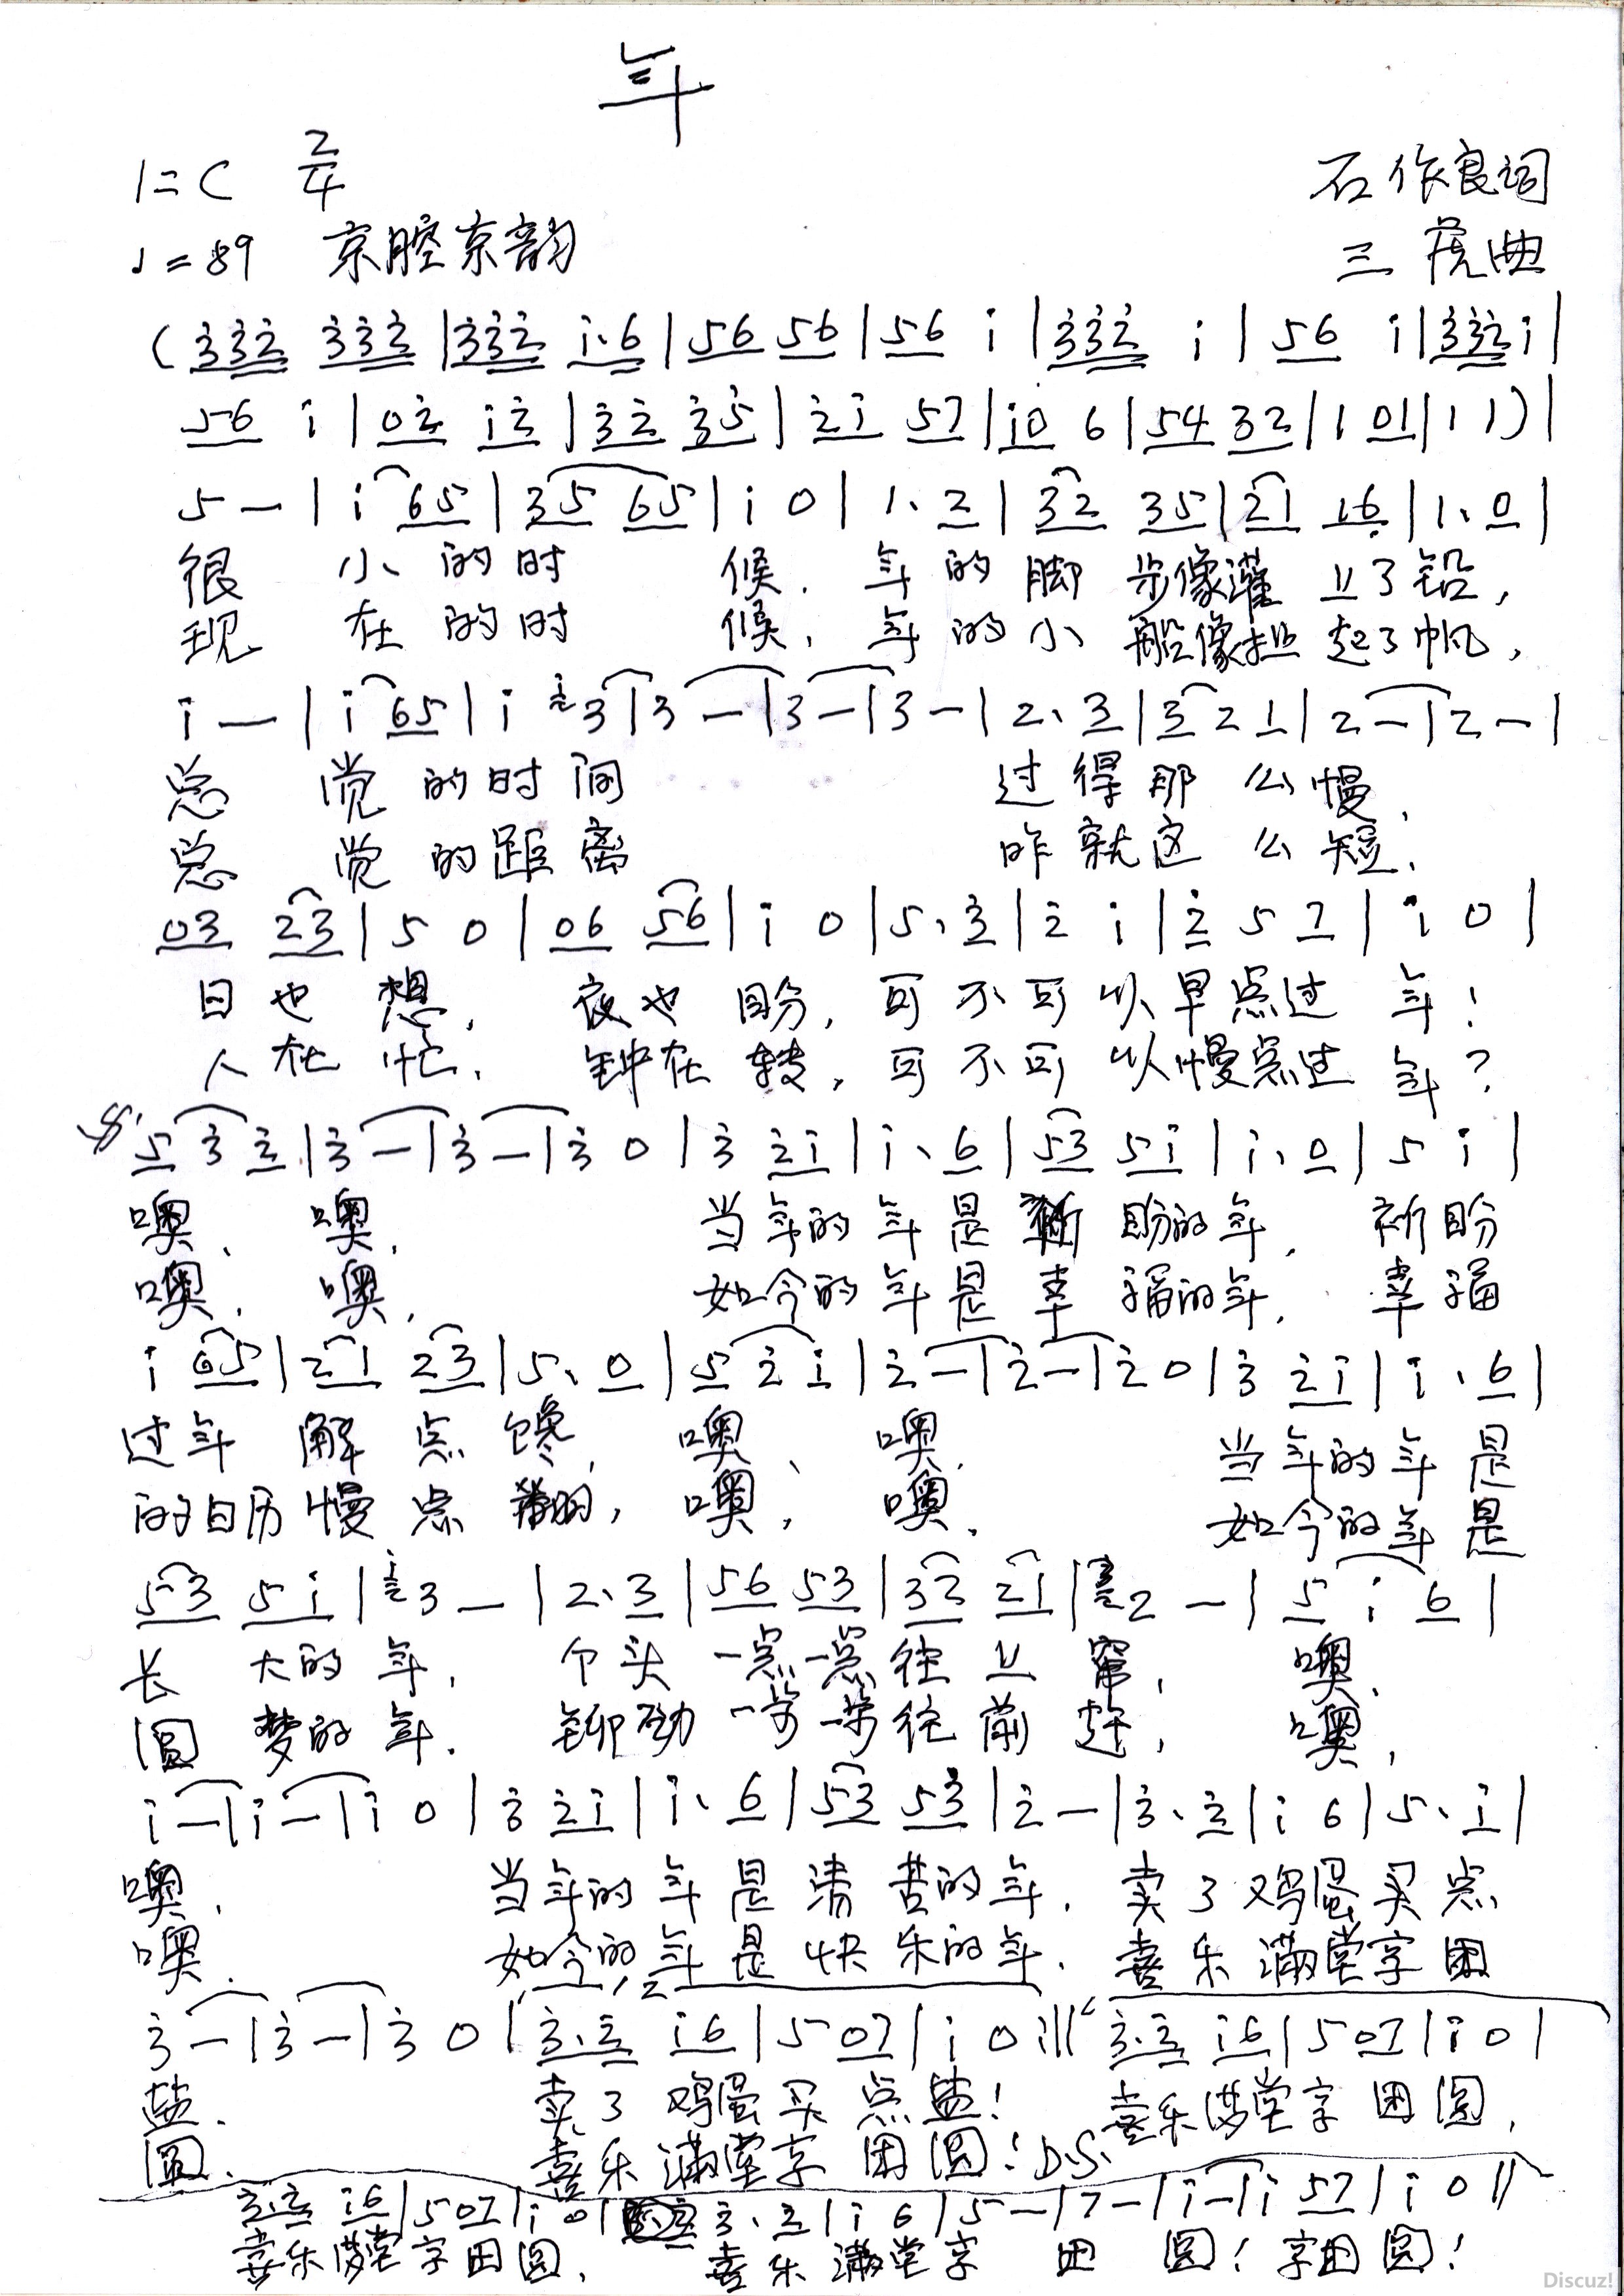 年
1=C 2/4
石作良词
♩=89 京腔京韵
三虎曲
(3̇3̇2̇ 3̇3̇2̇|3̇3̇2̇ i·6|56 56|56 i|3̇3̇2̇ i|56 i|3̇3̇2̇ i|
56 i|02̇ i2̇|3̇2̇ 3̇5̇|2̇i 57|i0 6|54 32|1 01|1 1)|
5 —|i 65|35 65|i 0|1· 2|32 35|21 16̣|1· 0|
很 小的时 候, 年的脚步像灌上了铅,
现 在的时 候, 年的小船像挂起了帆,
i —|i 65|i 3|3 —|3 —|3 —|2· 3|3 2 1|2 —|2 —|
总 觉的时间 过得那么慢,
总 觉的距离 咋就这么短,
03 23|5 0|06 56|i 0|5· 3̇|2̇ i|2̇ 5 7|i 0|
日也想, 夜也盼, 可不可以早点过年!
人在忙, 钟在转, 可不可以慢点过年?
5 3̇ 2̇|3̇ —|3̇ —|3̇ 0|3̇ 2̇i|i· 6|53 5i|i· 0|5 i|
噢, 噢, 当年的年是祈盼的年, 祈盼
噢, 噢, 如今的年是幸福的年, 幸福
i 65|21 23|5· 0|5 2̇ i|2̇ —|2̇ —|2̇ 0|3̇ 2̇i|i· 6|
过年解点馋, 噢, 噢, 当年的年是
的日历慢点翻, 噢, 噢, 如今的年是
53 5i|3 —|2· 3|56 53|32 21|2 —|5 i 6|
长大的年, 个头一点一点往上窜, 噢,
圆梦的年, 铆劲一步一步往前赶, 噢,
i —|i —|i 0|3̇ 2̇i|i· 6|53 53̇|2̇ —|3̇· 2̇|i 6|5· i|
噢, 当年的年是清苦的年, 卖了鸡蛋买点
噢, 如今的年是快乐的年, 喜乐满堂享团
3̇ —|3̇ —|3̇ 0|3̇·2̇ i6|5 07|i 0:‖3̇·2̇ i6|5 07|i 0|
盐, 卖了鸡蛋买点盐! 喜乐满堂享团圆,
圆, 喜乐满堂享团圆! D.S.
3̇·2̇ i6|5 07|i 0|3̇· 2̇|i 6|5 —|7 —|i —|i 57|i 0‖
喜乐满堂享团圆, 喜乐满堂享团圆! 享团圆!
Discuz!